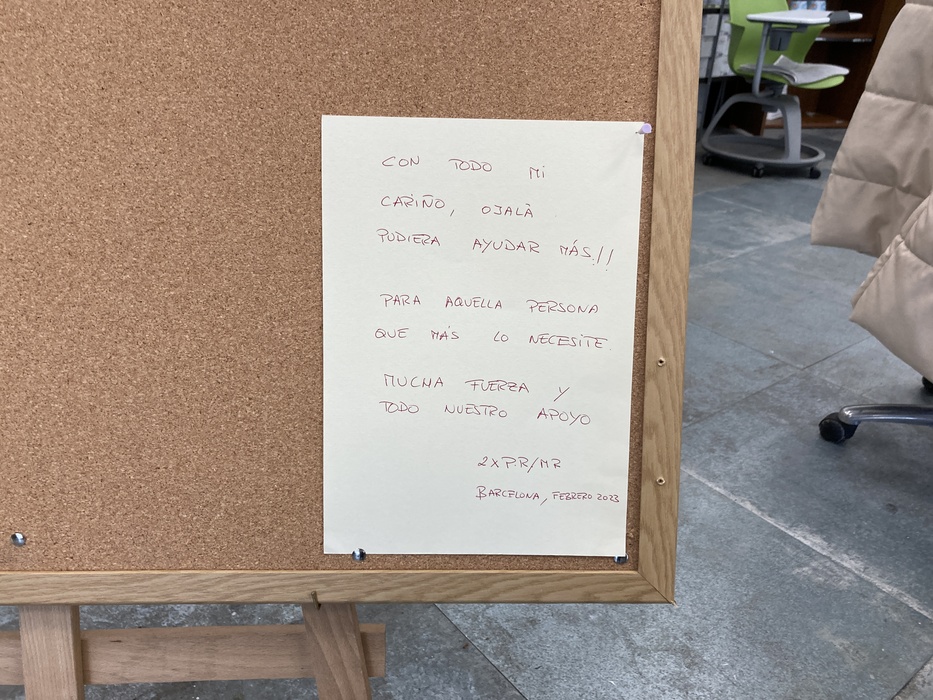 CON TODO Mi
CARIÑO, OJALÀ
PUDIERA AYUDAR MÁS!!
PARA AQUELLA PERSONA
QUE MÁS LO NECESITE.
MUCHA FUERZA Y
TODO NUESTRO APOYO
2XP.R/MR
BARCELONA, FEBRERO 2023